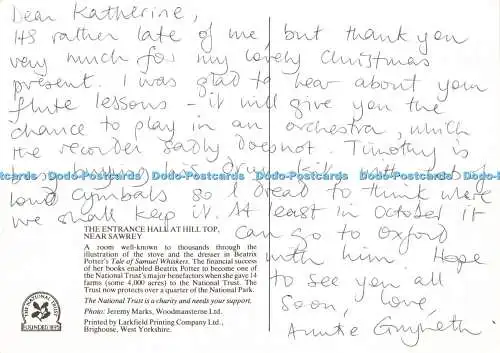 Dear Katherine,
It's rather late of me, but thank you
very much for my lovely Christmas
present. I was glad to hear about your
flute lessons - it will give you the
chance to play in an orchestra, which
the recorder sadly does not. Timothy is
busy buying his drum kit, with
loud cymbals so I dread to think where
we shall keep it. At least in October it
can go to Oxford
with him. Hope
to see you all
soon, love,
Auntie Gwyneth.
THE ENTRANCE HALL AT HILL TOP,
NEAR SAWREY
A room well-known to thousands through the
illustration of the stove and the dresser in Beatrix
Potter's Tale of Samuel Whiskers. The financial success
of her books enabled Beatrix Potter to become one of
the National Trust's major benefactors when she gave 14
farms (some 4,000 acres) to the National Trust. The
Trust now protects over a quarter of the National Park.
The National Trust is a charity and needs your support.
Photo: Jeremy Marks, Woodmansterne Ltd.
Printed by Larkfield Printing Company Ltd.,
Brighouse, West Yorkshire.
THE NATIONAL TRUST
FOUNDED 1895
Dodo-Postcards Dodo-Postcards Dodo-Postcards Dodo-Postcards Dodo-Postcards